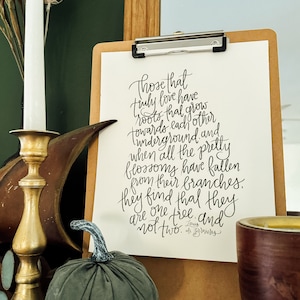 Those that
truly love have
roots that grow
towards each other
underground and
when all the pretty
blossoms have fallen
from their branches.
they find that they
are one tree and
not two.